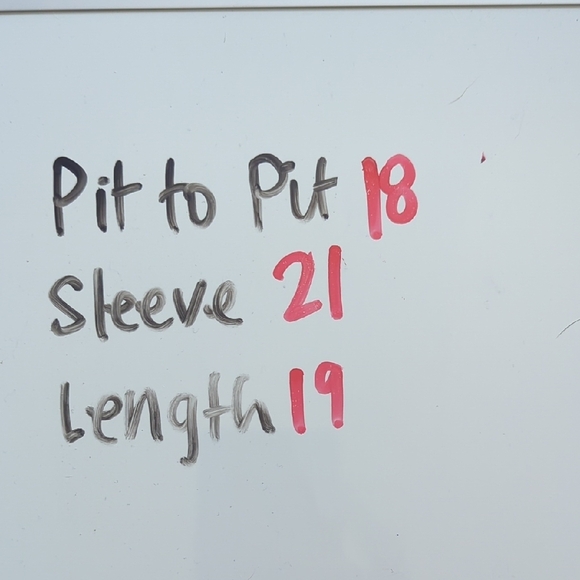 Pit to Pit 18
Sleeve 21
Length 19